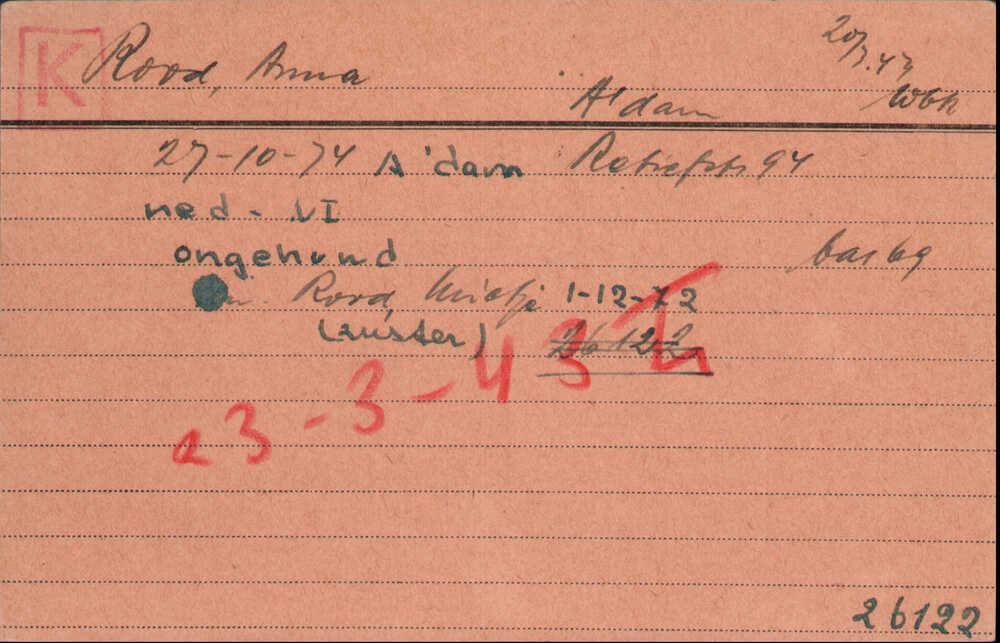 K Rood, Anna
20/3.43
A'dam Wbk
27-10-74 A'dam Retiefstr 94
ned. VI
ongehuwd
bar 69
Rood, 1-12-72
(zuster) 26122
23-3-43 Tr
26122